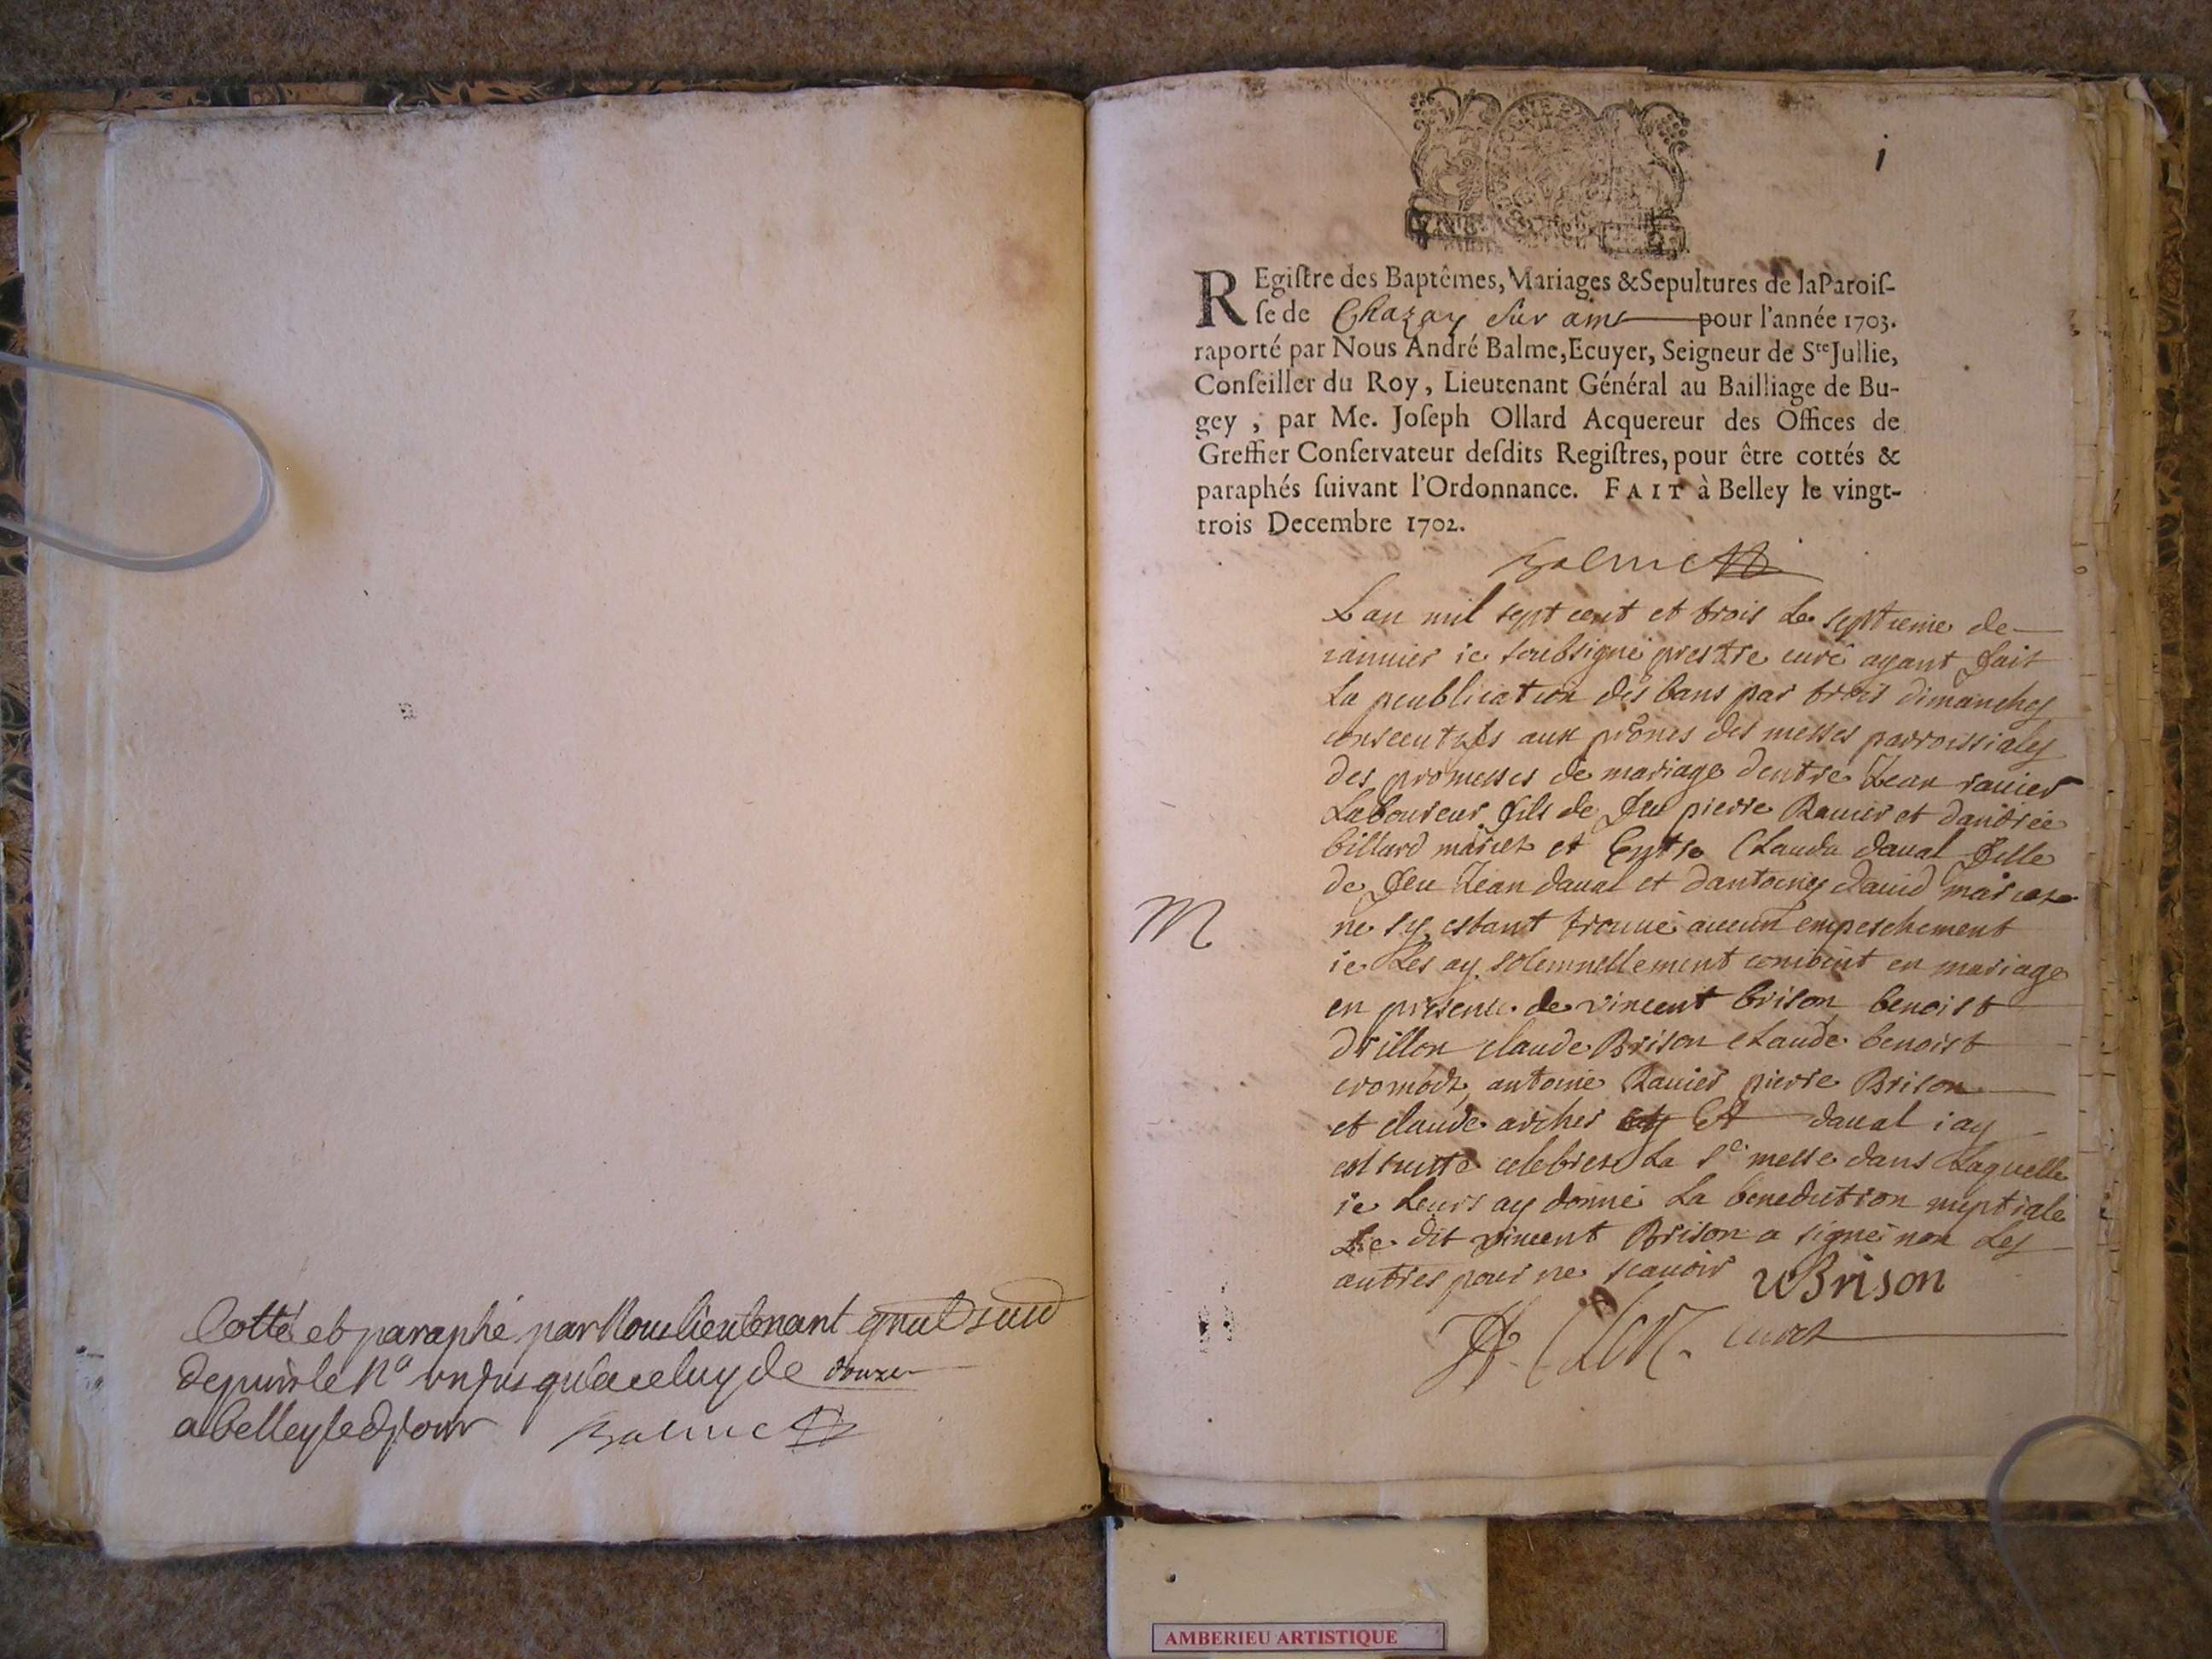 Cotté et paraphé par Nous lieutenant gnal susd
depuis le N° un jusqu'a celuy de douze
a belley led jour Balme
i
REgiſtre des Baptêmes, Mariages & Sepultures de la Paroiſ-
ſe de Chazay sur ains pour l'année 1703.
raporté par Nous André Balme, Ecuyer, Seigneur de Ste Jullie,
Conſeiller du Roy, Lieutenant Général au Bailliage de Bu-
gey ; par Me. Joſeph Ollard Acquereur des Offices de
Greffier Conſervateur deſdits Regiſtres, pour être cottés &
paraphés ſuivant l'Ordonnance. FAIT à Belley le vingt-
trois Decembre 1702.
Balme
Lan mil sept cent et trois le septieme de
ianuier ie soubsigné prestre curé ayant fait
la peublication des bans par trois dimanches
consecutifs aux prônes des messes parroissiales
des promesses de mariage dentre Jean rauier
Laboureur fils de feu pierre Rauier et dandrée
billard mariez et Entre Clauda daual fille
de feu Jean daual et dantoines Dauid mariez
ne sy estant trouué aucun empeschement
M
ie les ay solemnellement conioint en mariage
en presence de vincent brison benoist
drillon claude Brison claude benoist
antoine Rauier pierre Brison
et claude archer Et daual iay
ensuitte celebrer la Se messe dans Laquelle
ie Leurs ay donné la benediction nuptiale
Le dit vincent Brison a signé non les
autres pour ne scauoir
vBrison
curé
AMBERIEU ARTISTIQUE